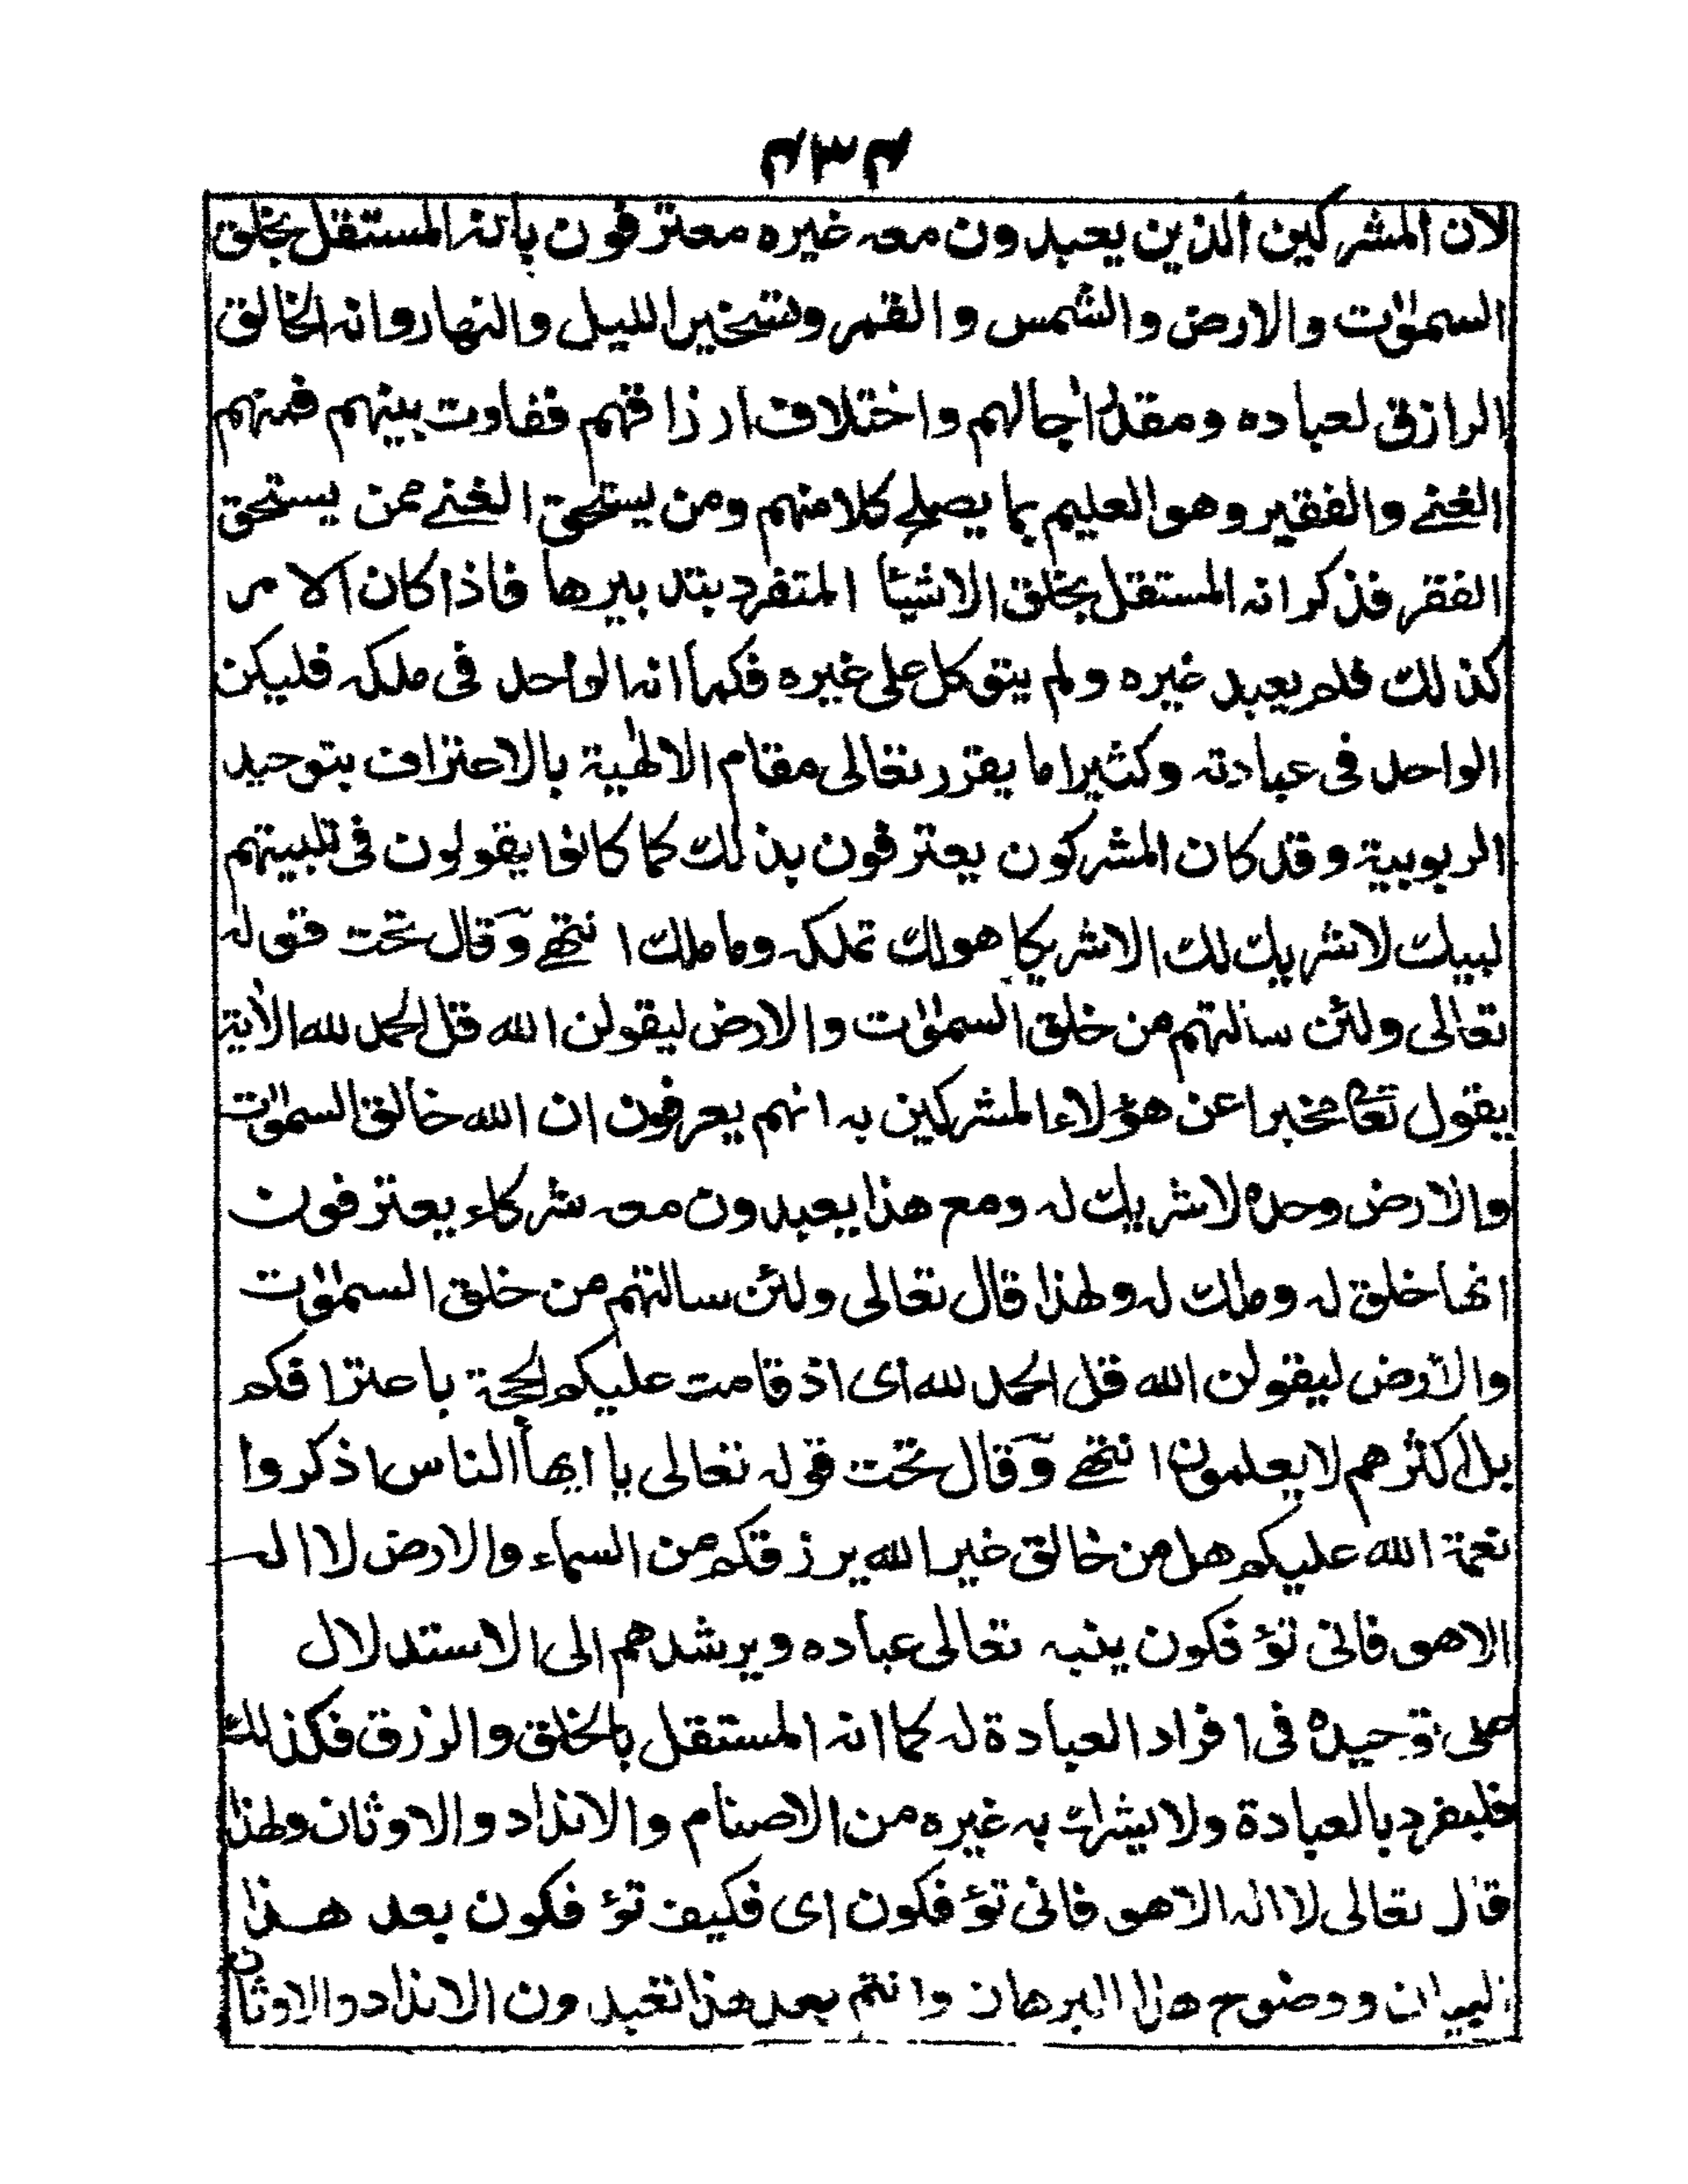 ۴۳۴
لان المشركين الذين يعبدون معه غيره معترفون بأنه المستقل بخلق
السمٰوٰت والارض والشمس والقمر وتسخير الليل والنهار وانه الخالق
الرازق لعباده ومقدر اجالهم واختلاف ارزاقهم ففاوت بينهم فمنهم
الغنے والفقير وهو العليم بما يصلح كلا منهم ومن يستحق الغنے ممن يستحق
الفقر فذكر انه المستقل بخلق الاشيأ المتفرد بتدبيرها فاذا كان الامر
كذلك فلم يعبد غيره ولم يتوكل على غيره فكما انه الواحد فى ملكه فليكن
الواحد فى عبادته وكثيرا ما يقرر تعالى مقام الالٰهية بالاعتراف بتوحيد
الربوبية وقد كان المشركون يعترفون بذلك كما كانوا يقولون فى تلبيتهم
لبيك لا شريك لك الا شريكا هو لك تملكه وما ملك انتهے وقال تحت قوله
تعالى ولئن سالتهم من خلق السمٰوٰت والارض ليقولن الله قل الحمد لله الاٰية
يقول تعا مخبرا عن هؤلاء المشركين به انهم يعرفون ان الله خالق السمٰوٰت
والارض وحده لا شريك له ومع هذا يعبدون معه شركاء يعترفون
انها خلق له وملك له ولهذا قال تعالى ولئن سالتهم من خلق السمٰوٰت
والارض ليقولن الله قل الحمد لله اى اذ قامت عليكم الحجة باعترافكم
بل اكثرهم لا يعلمون انتهے وقال تحت قوله تعالى يا ايها الناس اذكروا
نعمة الله عليكم هل من خالق غير الله يرزقكم من السماء والارض لا اله
الا هو فانى تؤفكون ينبه تعالى عباده ويرشدهم الى الاستدلال
على توحيده فى افراد العبادة له كما انه المستقل بالخلق والرزق فكذلك
فليفرد بالعبادة ولا يشرك به غيره من الاصنام والانداد والاوثان ولهذا
قال تعالى لا اله الا هو فانى تؤفكون اى فكيف تؤفكون بعد هذا
البيان ووضوح هذا البرهان وانتم بعد هذا تعبدون الانداد والاوثان